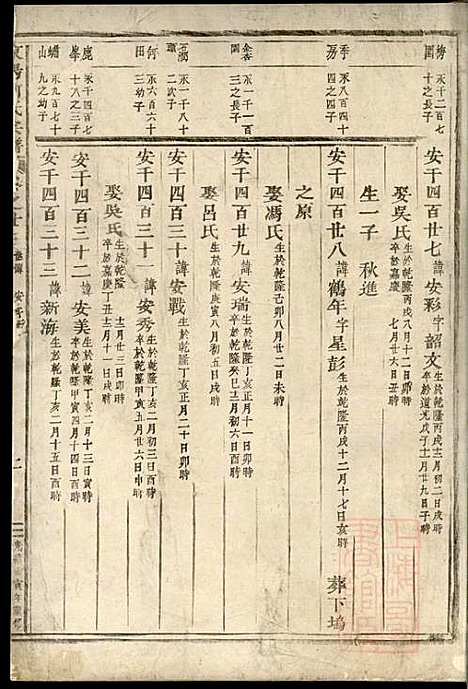 梅園 永千二百七十之長子
安千四百廿七 諱安彩字韶文 生於乾隆丙戌十一月初二日戌時 卒於道光戊子十一月廿九日子時
娶吳氏 生於乾隆丙戌八月十二日卯時 卒於嘉慶 七月廿六日丑時
生一子 秋進
季芴 永八百四十四之四子
安千四百廿八 諱鶴年字星彭 生於乾隆丙戌十二月十七日亥時 葬下塢
之原
娶馮氏 生於乾隆己卯八月廿二日未時
金杏園 永一千一百三之長子
安千四百廿九 諱安瑞 生於乾隆丁亥正月十一日卯時 卒於乾隆癸巳三月初六日酉時
娶呂氏 生於乾隆庚寅八月初五日戌時
永一千八十二次子
安千四百三十 諱安戰 生於乾隆丁亥正月二十日卯時
何田 永六百六十三幼子
安千四百三十一 諱安秀 生於乾隆丁亥二月初三日酉時 卒於乾隆甲寅五月廿六日申時
娶吳氏 生於乾隆 十二月廿三日卯時 卒於嘉慶丁丑十一月十一日戌時
鹿峯 永千四百七十八之三子
安千四百三十二 諱安美 生於乾隆丁亥二月十三日寅時 卒於乾隆甲寅四月十四日酉時
蝴山 永九百七十九之幼子
安千四百三十三 諱新海 生於乾隆丁亥二月十五日酉時